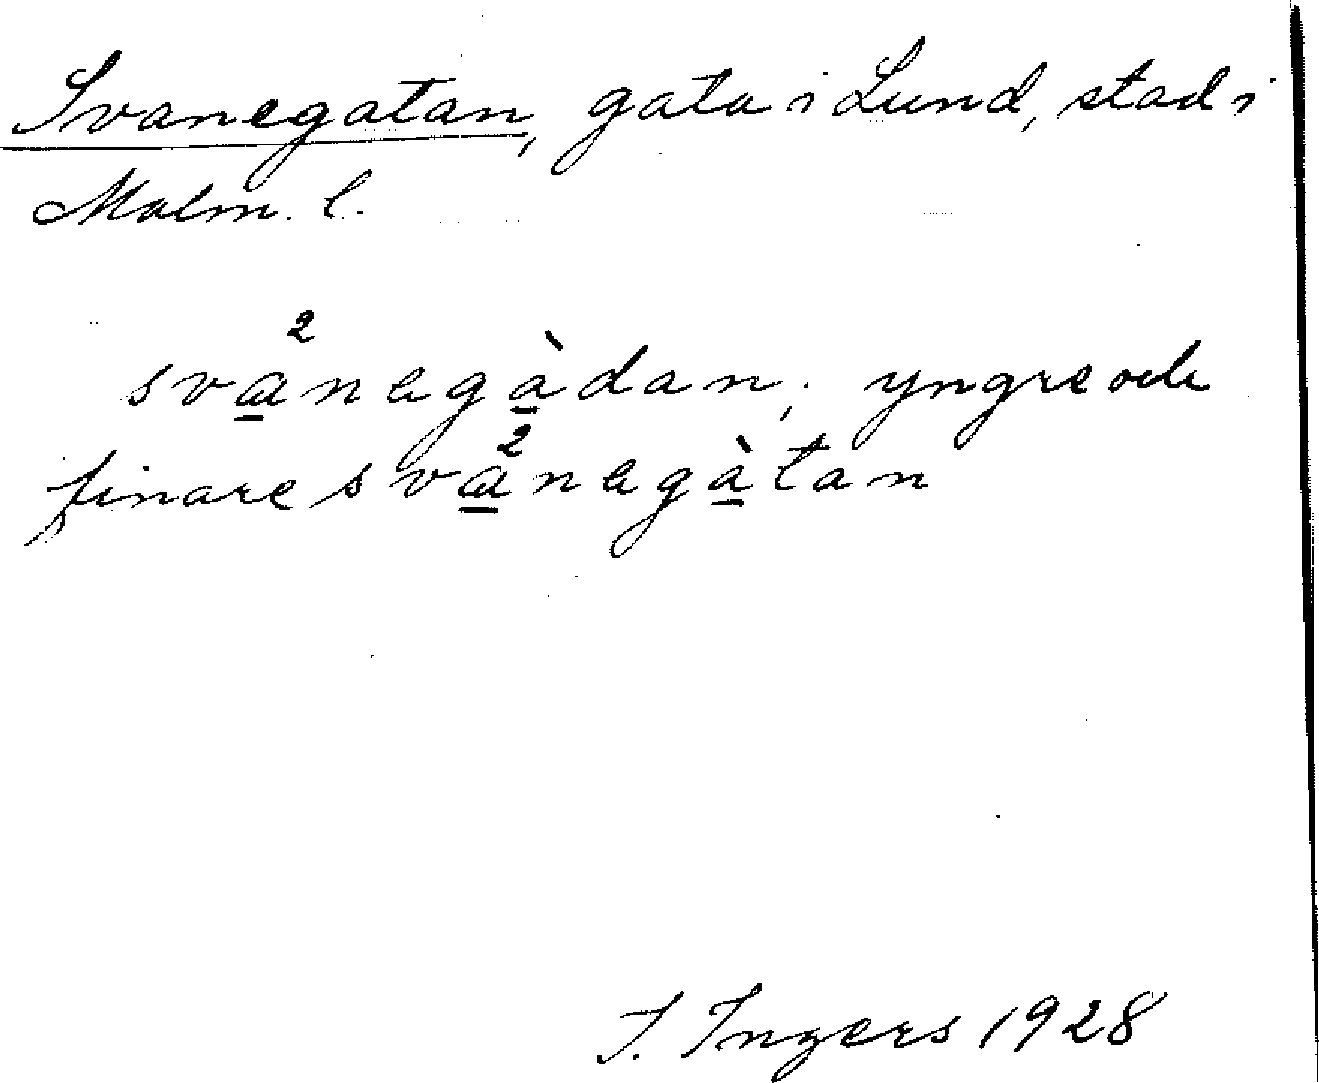 Svanegatan, gata i Lund, stad i
Malm. l.
sva̲²negà̲dan; yngre och
finare sva̲²negà̲tan
I. Ingers 1928